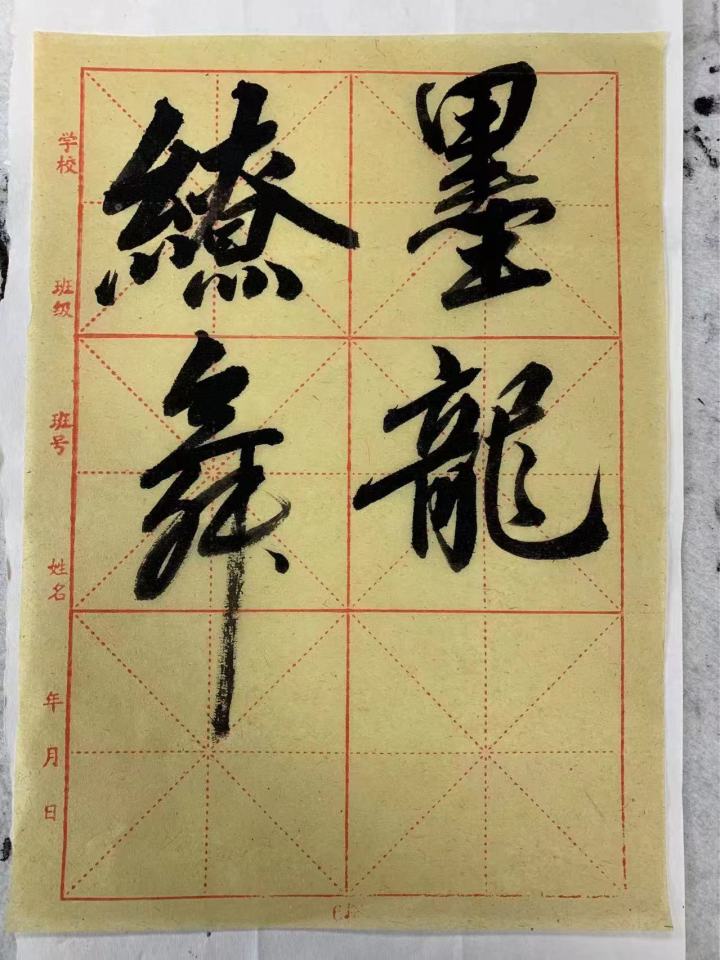 墨龍
繚舞
学校
班级
班号
姓名
年月日